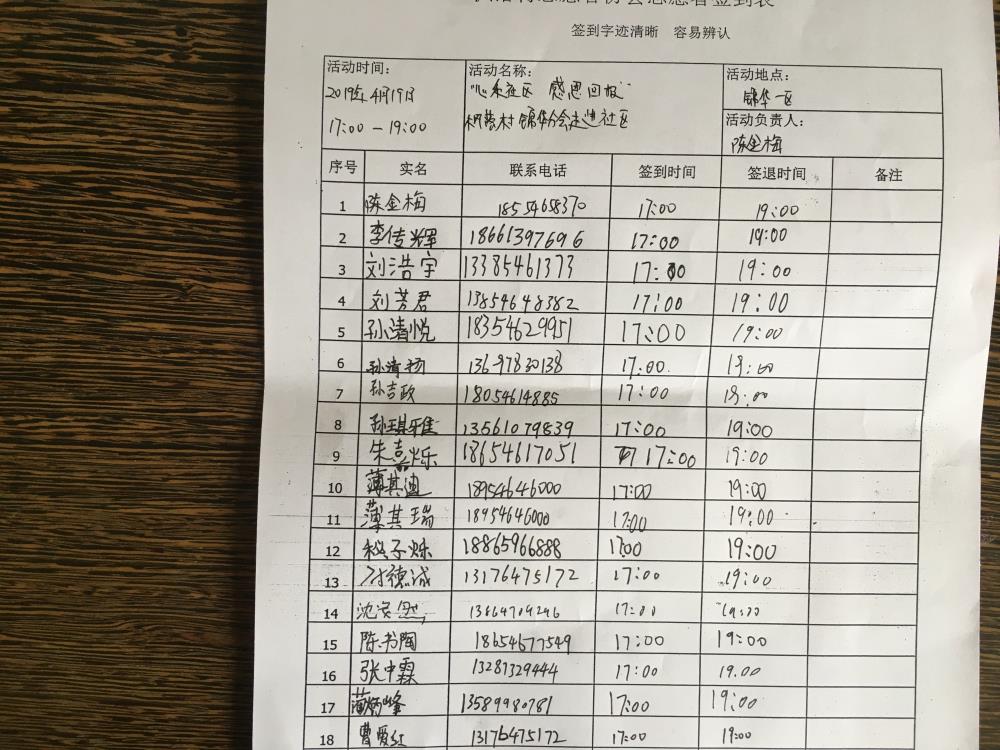 签到字迹清晰 容易辨认
活动时间: 活动名称: 活动地点:
2019年4月19日 "心系社区 感恩回报" 锦华一区
17:00-19:00 锦华分会走进社区 活动负责人:
陈金梅
序号 实名 联系电话 签到时间 签退时间 备注
1 陈金梅 1855468370 17:00 19:00
2 李传辉 18661397696 17:00 19:00
3 刘浩宇 13385461373 17:00 19:00
4 刘芳君 13854648382 17:00 19:00
5 孙清悦 18354629951 17:00 19:00
6 孙清扬 13697830138 17:00 19:00
7 孙吉政 18054614885 17:00 19:00
8 孙琪雅 13561079839 17:00 19:00
9 朱熹烁 18654617051 17:00 19:00
10 薄其迪 18954646000 17:00 19:00
11 薄其瑞 18954646000 17:00 19:00
12 子烁 18865966888 17:00 19:00
13 付德诚 13176475172 17:00 19:00
14 沈 17:00 19:00
15 陈书陶 18654677549 17:00 19:00
16 张中霖 13287329444 17:00 19.00
17 峰 13589980781 17:00 19:00
18 曹爱红 13176475172 17:00 19:00